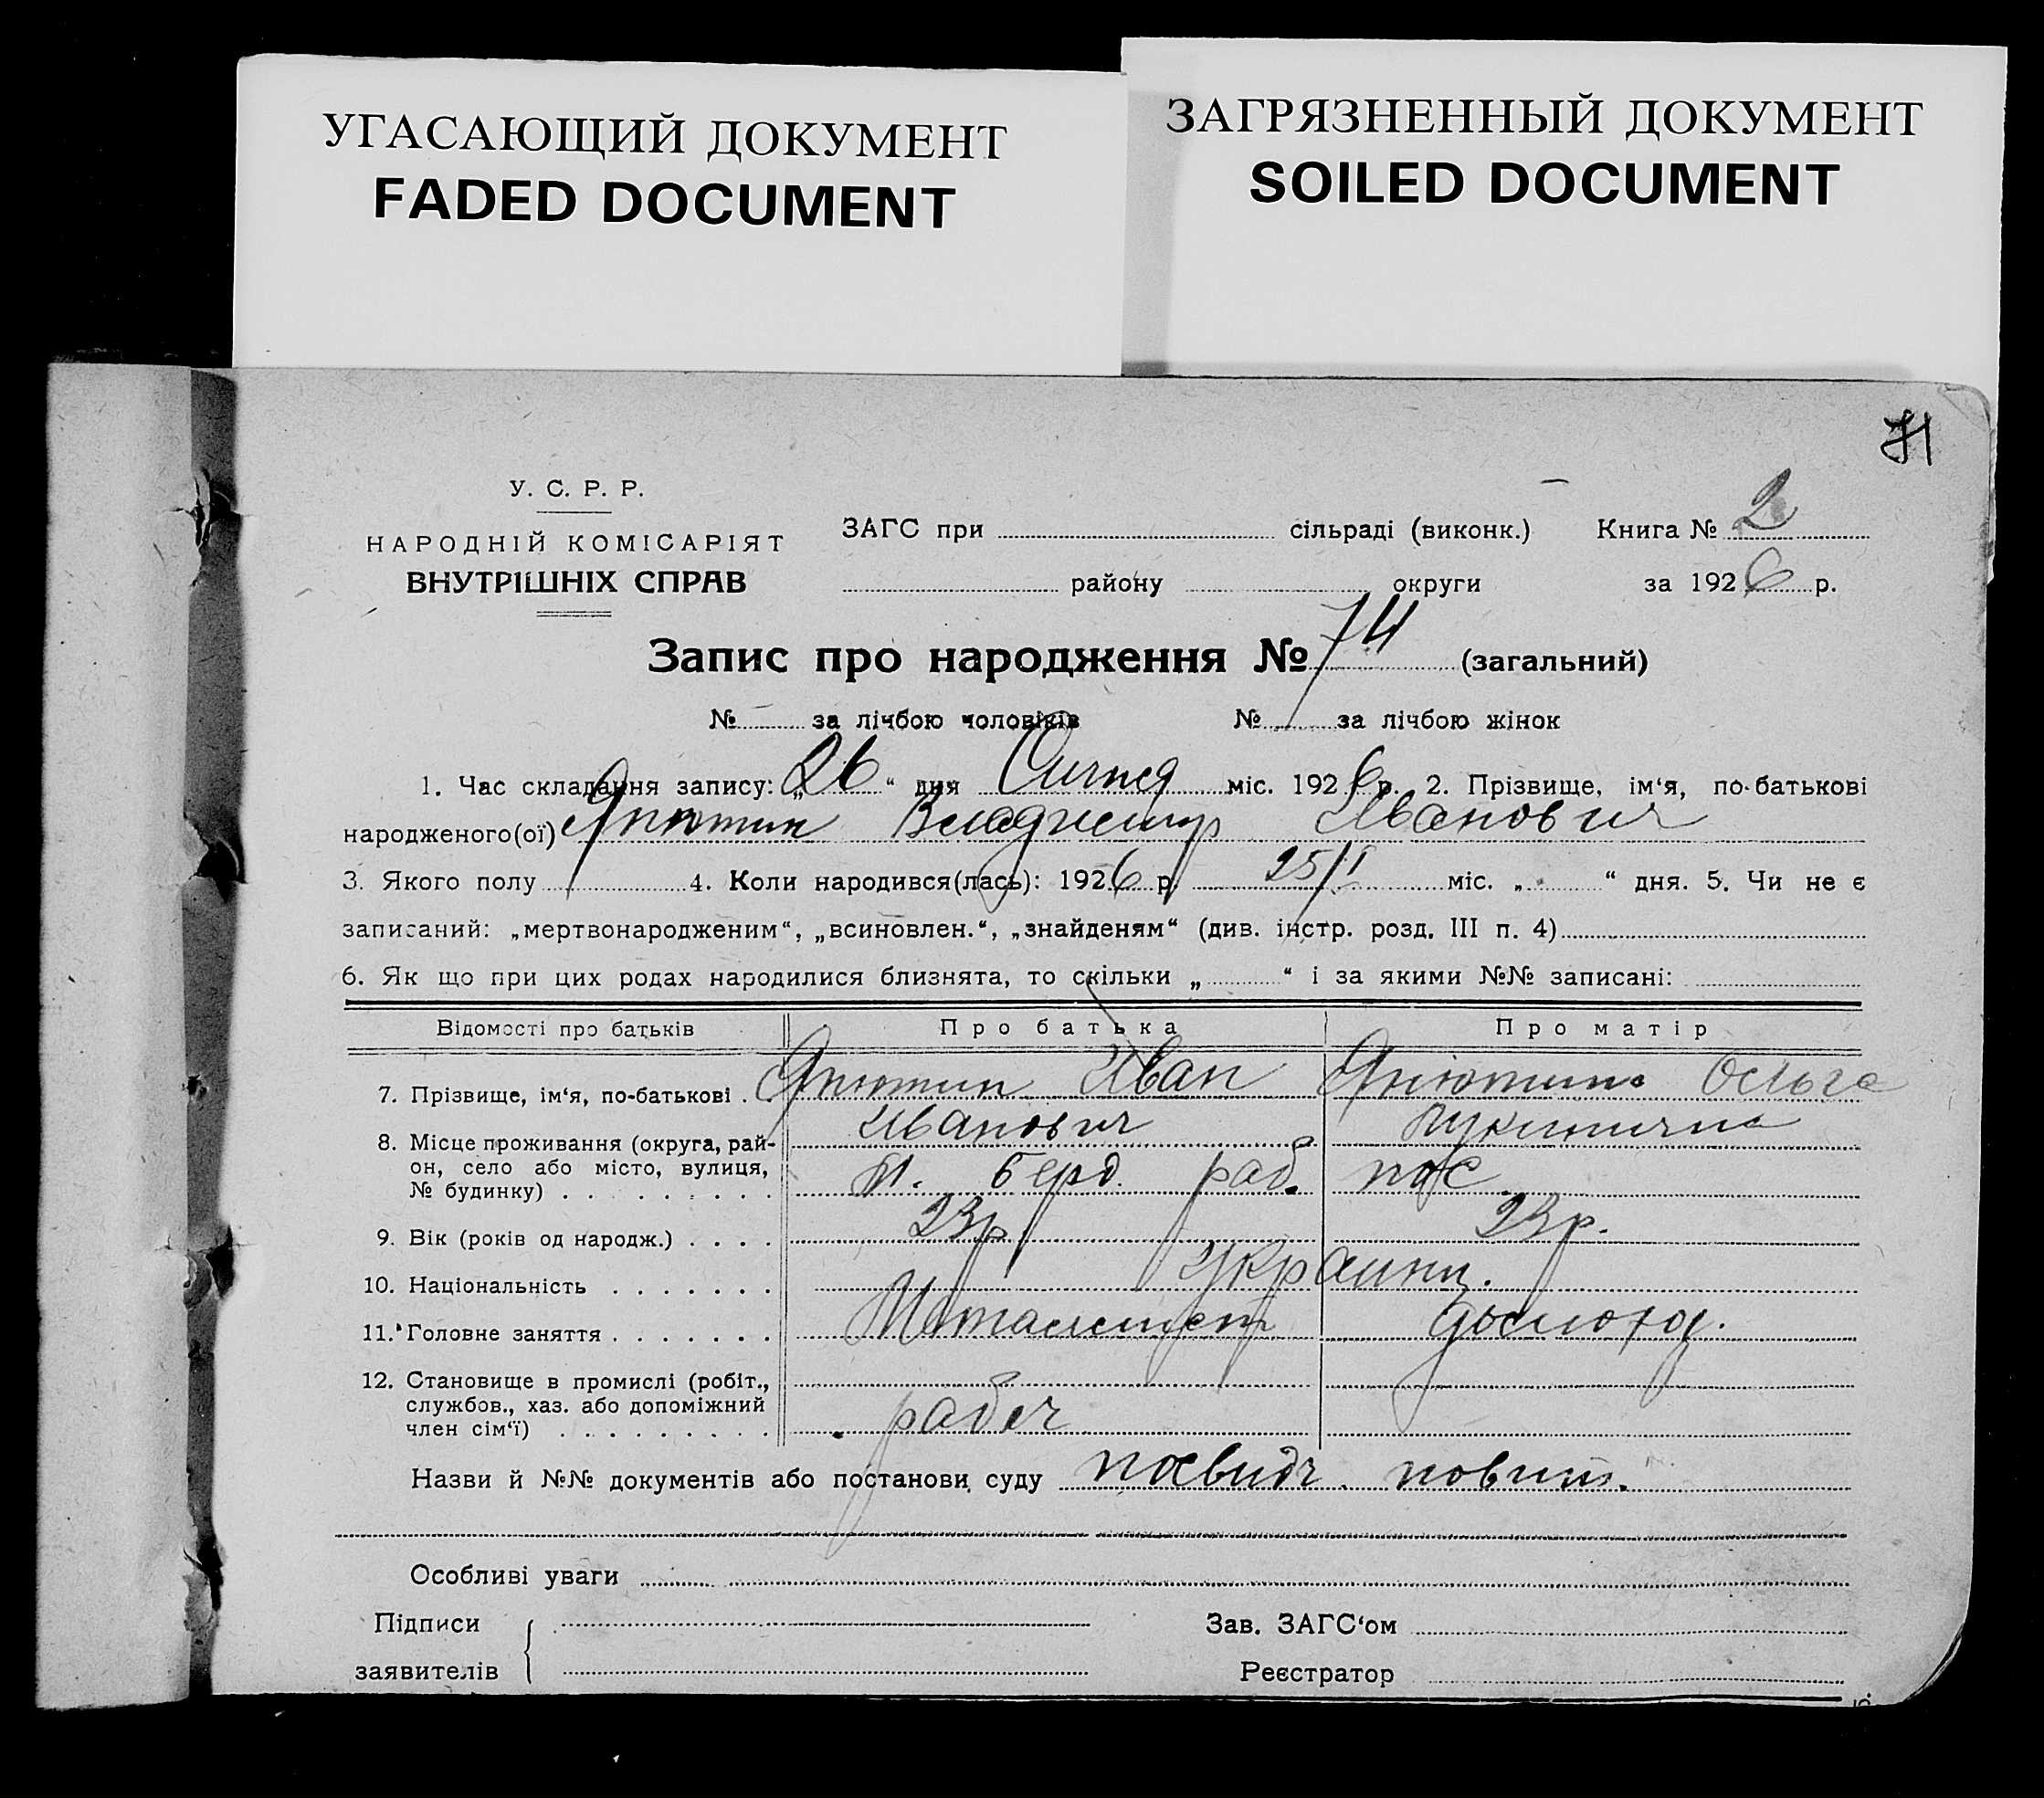 УГАСАЮЩИЙ ДОКУМЕНТ
FADED DOCUMENT
ЗАГРЯЗНЕННЫЙ ДОКУМЕНТ
SOILED DOCUMENT
71
У. С. Р. Р.
НАРОДНІЙ КОМІСАРІЯТ
ВНУТРІШНІХ СПРАВ
ЗАГС при сільраді (виконк.) Книга № 2
району округи за 1926 р.
Запис про народження № 74 (загальний)
№ за лічбою чоловіків № за лічбою жінок
1. Час складання запису: „26“ дня Січня міс. 1926 р. 2. Прізвище, ім‘я, по-батькові
народженого(ої) Янютин Владимир Иванович
3. Якого полу 4. Коли народився(лась): 1926 р. 25/I міс. „ “ дня. 5. Чи не є
записаний: „мертвонародженим“, „всиновлен.“, „знайденям“ (див. інстр. розд. III п. 4)
6. Як що при цих родах народилися близнята, то скільки „ “ і за якими №№ записані:
Відомості про батьків Про батька Про матір
7. Прізвище, ім‘я, по-батькові . Янютин Иван Янютина Ольга
Иванович
8. Місце проживання (округа, рай-
он, село або місто, вулиця,
№ будинку) . . . . . . . . . Берд. раб. пос
9. Вік (років од народж.) . . . . 23 р. 23 р.
10. Національність . . . . . . . Украинц.
11. Головне заняття . . . . . . . Металист домохоз.
12. Становище в промислі (робіт.,
службов., хаз. або допоміжний
член сім‘ї) . . . . . . . . . рабоч
Назви й №№ документів або постанови суду посвидч. повит.
Особливі уваги
Підписи
заявителів
Зав. ЗАГС‘ом
Реєстратор